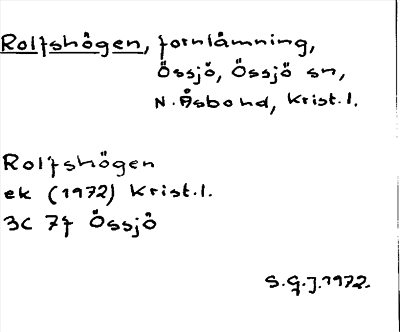 Rolfshögen, fornlämning,
Össjö, Össjö sn,
N. Åsbohd, Krist.l.
Rolfshögen
ek (1972) Krist.l.
3C 7f Össjö
S.G.J. 1972.